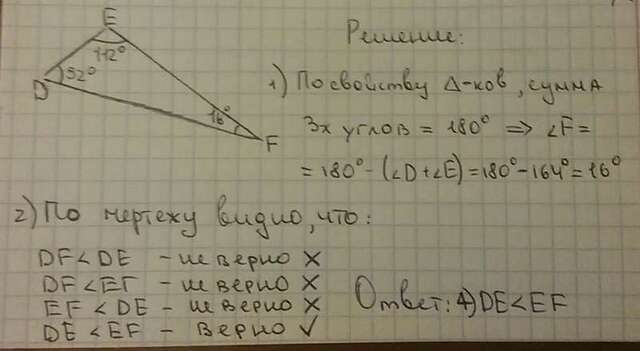 E
112°
52°
D
16°
F
Решение:
1) По свойству Δ-ков, сумма
3х углов = 180° => ∠F=
= 180° - (∠D+∠E)=180°-164°=16°
2) По чертежу видно, что:
DF<DE - не верно X
DF<EF - не верно X
EF<DE - не верно X
DE<EF - верно ✓
Ответ: 4) DE<EF